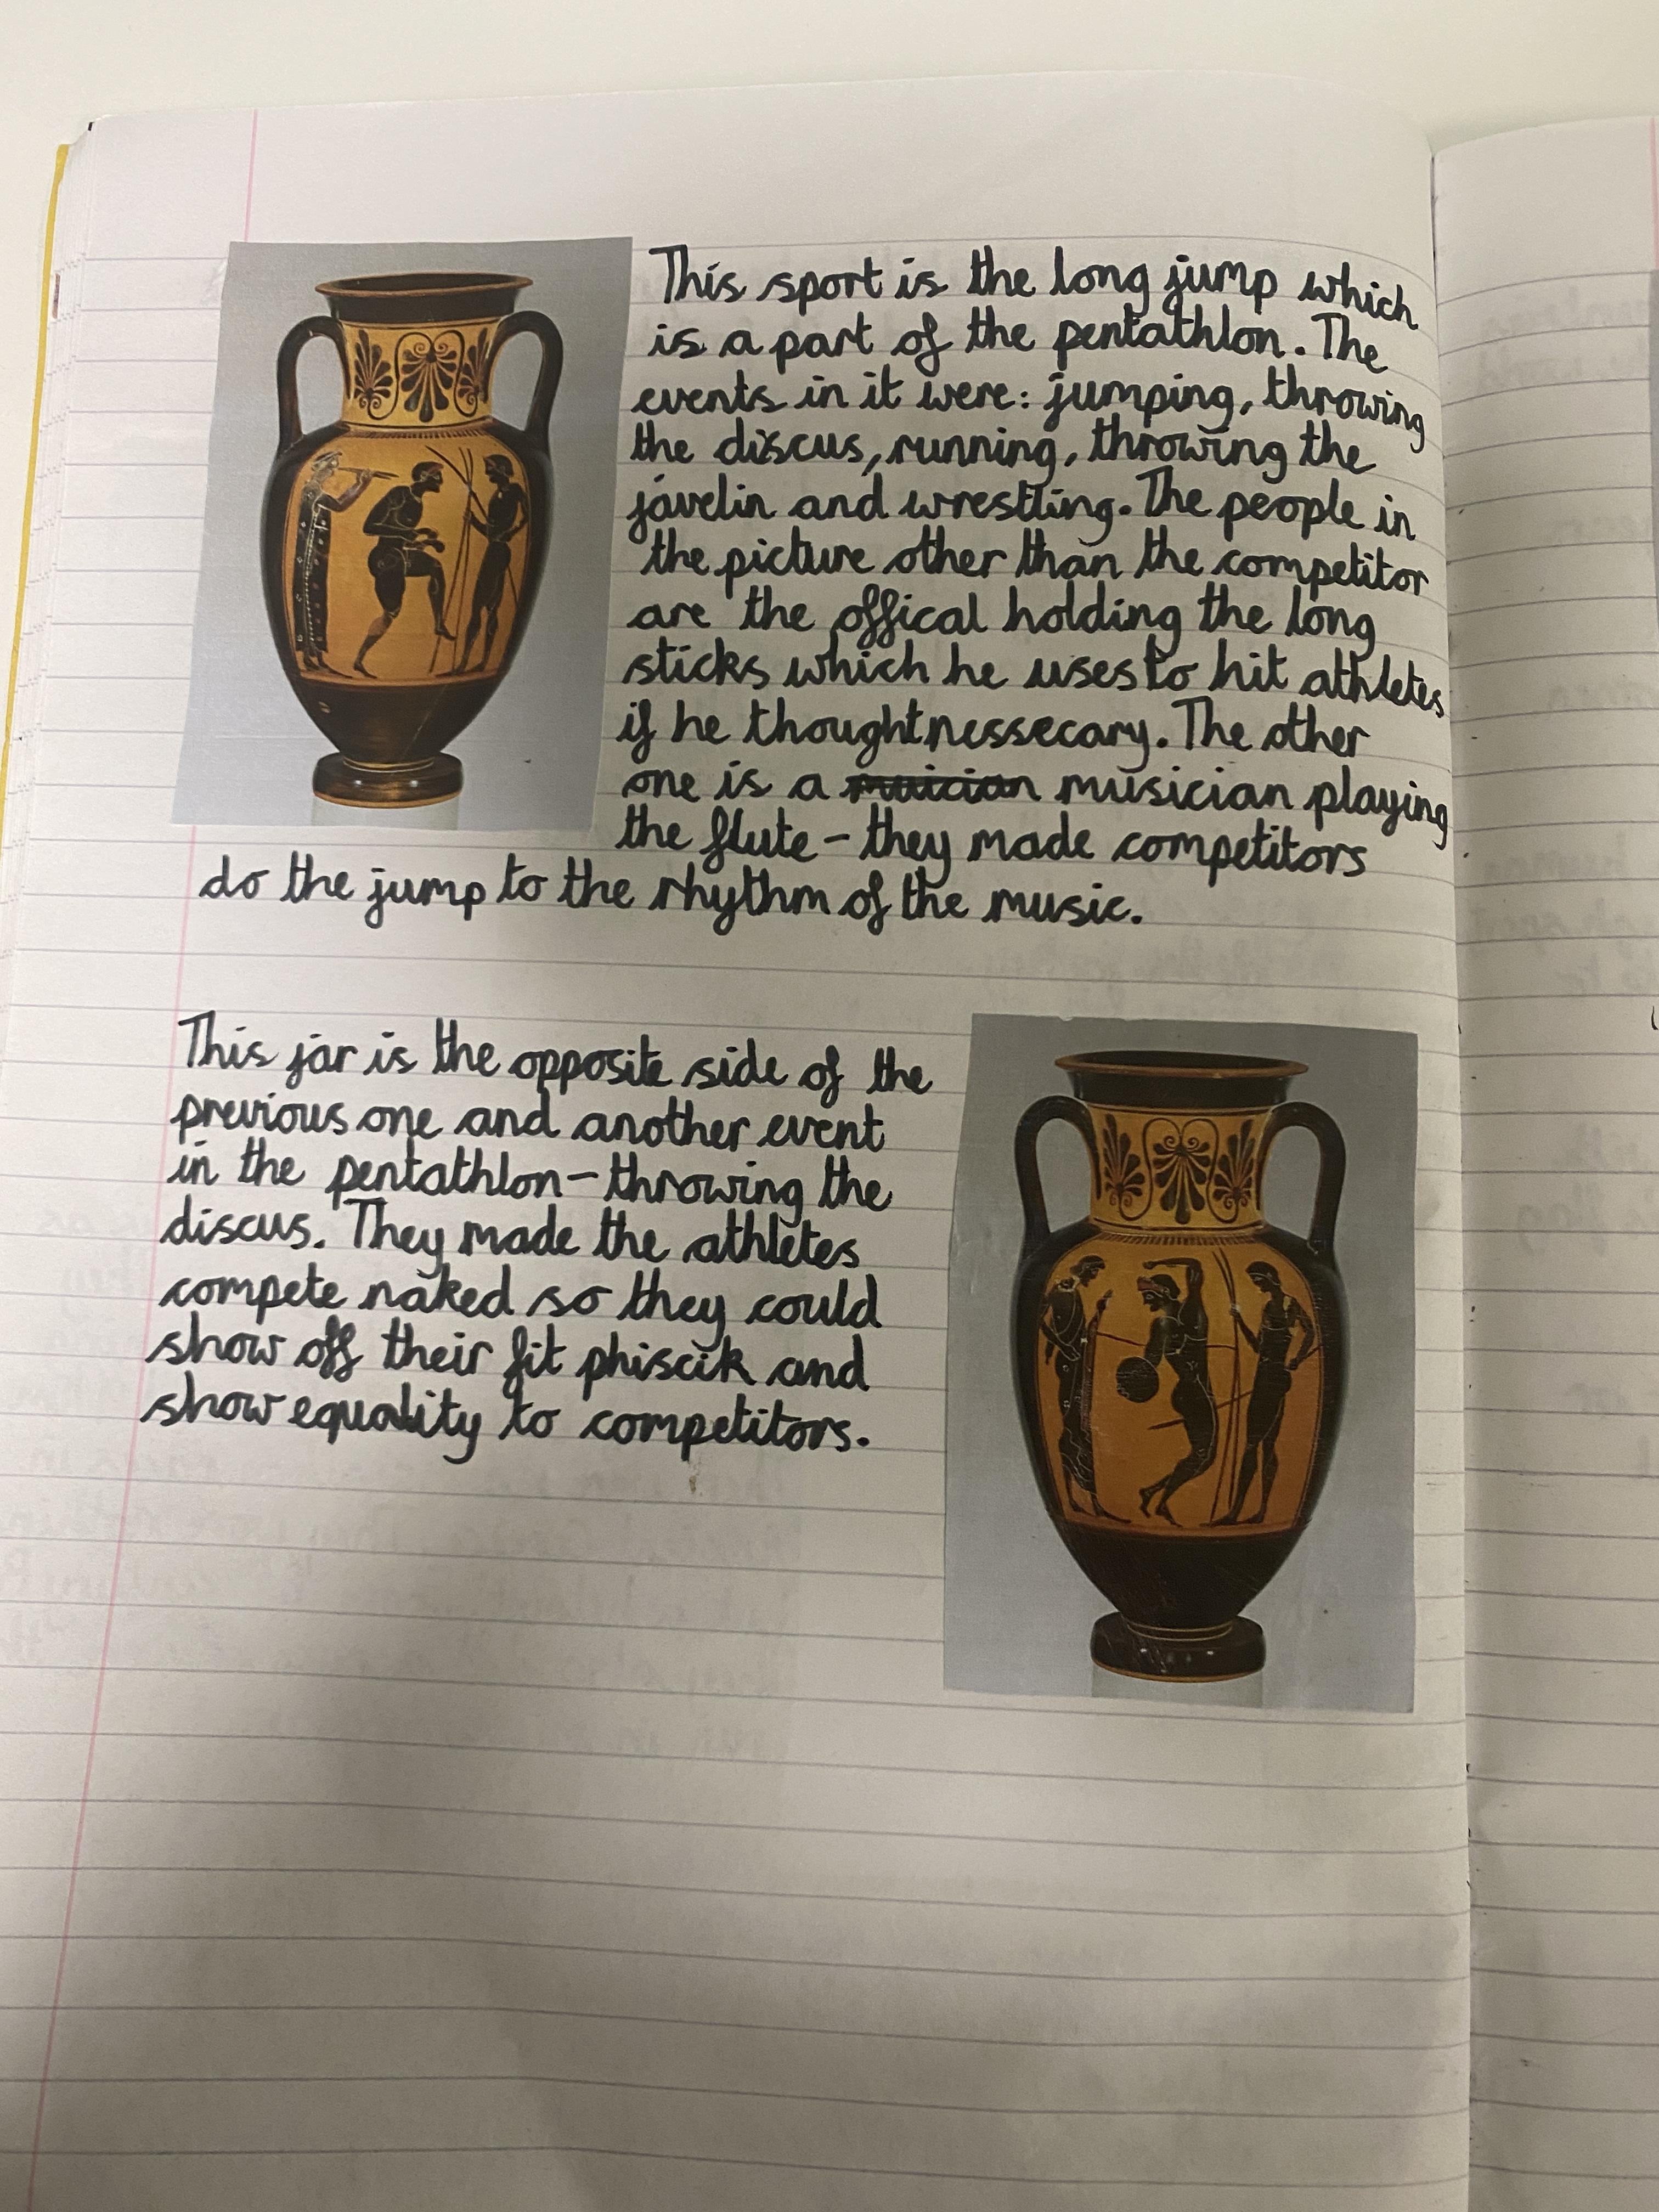 This sport is the long jump which
is a part of the pentathlon. The
events in it were: jumping, throwing
the discus, running, throwing the
javelin and wrestling. The people in
the picture other than the competitor
are the offical holding the long
sticks which he uses to hit athletes
if he thought nessecary. The other
one is a musician playing
the flute - they made competitors
do the jump to the rhythm of the music.
This jar is the opposite side of the
previous one and another event
in the pentathlon - throwing the
discus. They made the athletes
compete naked so they could
show off their fit phiscik and
show equality to competitors.